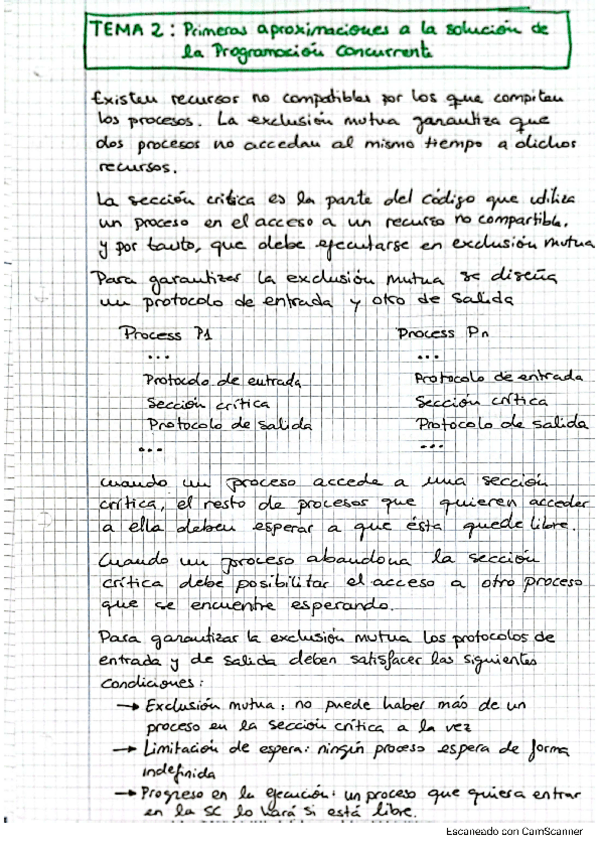 TEMA 2: Primeras aproximaciones a la solución de
la Programación Concurrente
Existen recursos no compatibles por los que compiten
los procesos. La exclusión mutua garantiza que
dos procesos no accedan al mismo tiempo a dichos
recursos.
La sección crítica es la parte del código que utiliza
un proceso en el acceso a un recurso no compartible,
y por tanto, que debe ejecutarse en exclusión mutua
Para garantizar la exclusión mutua se diseña
un protocolo de entrada y otro de salida
Process P1 Process Pn
... ...
Protocolo de entrada Protocolo de entrada
Sección crítica Sección crítica
Protocolo de salida Protocolo de salida
... ...
Cuando un proceso accede a una sección
crítica, el resto de procesos que quieren acceder
a ella deben esperar a que ésta quede libre.
Cuando un proceso abandona la sección
crítica debe posibilitar el acceso a otro proceso
que se encuentre esperando.
Para garantizar la exclusión mutua los protocolos de
entrada y de salida deben satisfacer las siguientes
condiciones:
→ Exclusión mutua: no puede haber más de un
proceso en la sección crítica a la vez
→ Limitación de espera: ningún proceso espera de forma
indefinida
→ Progreso en la ejecución: un proceso que quiera entrar
en la SC lo hará si está libre.
Escaneado con CamScanner